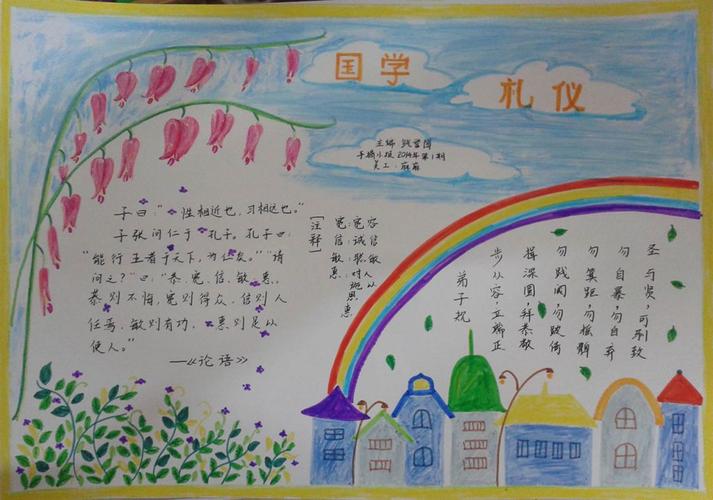 国学
礼仪
主编
手抄小报 2014年第1期
美工:
子曰:“性相近也,习相远也。”
子张问仁于孔子。孔子曰:
“能行五者于天下,为仁矣。”“请
问之?”曰:“恭、宽、信、敏、惠。
恭则不悔,宽则得众,信则人
任焉,敏则有功,惠则足以
使人。”
——《论语》
[注释]
宽:宽容
信:诚信
敏:聪敏
惠:对人施恩惠
弟子规
步从容,立端正
揖深圆,拜恭敬
勿践阈,勿跛倚
勿箕踞,勿摇髀
勿自暴,勿自弃
圣与贤,可驯致